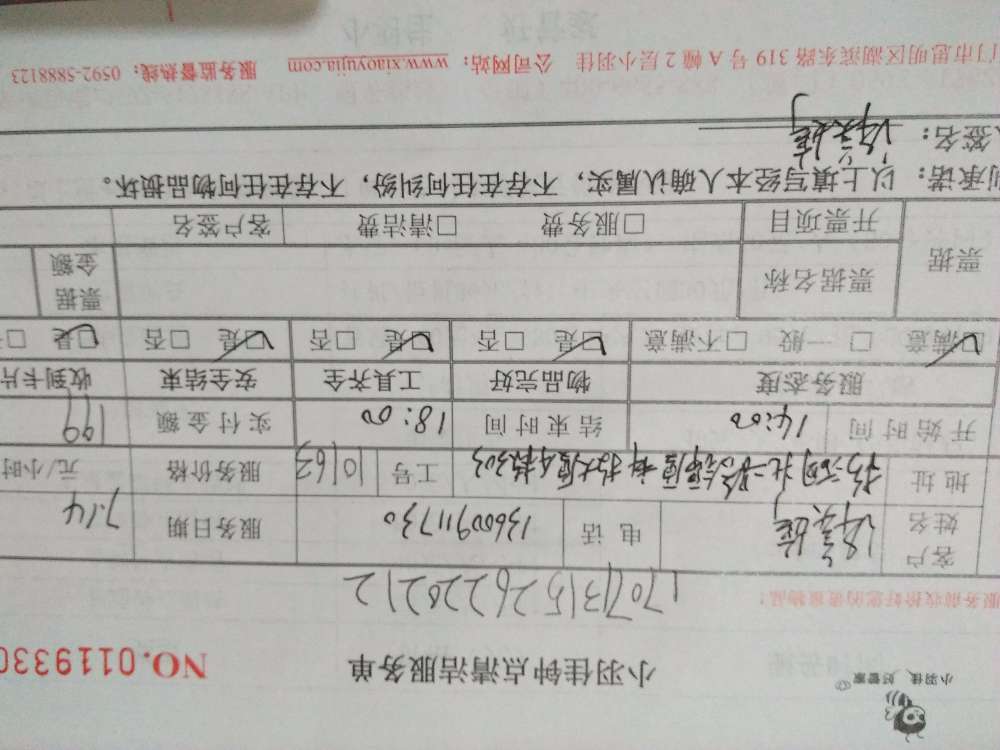 小羽佳 好管家
小羽佳钟点清洁服务单 NO.0119330
服务前收捡好您的贵重物品！
1707131526220212
客户姓名 电话 13600911730 服务日期 7.14
地址 工号 10163 服务价格 元/小时
开始时间 14:00 结束时间 18:00 实付金额 199
服务态度 物品完好 工具齐全 安全结束 收到卡片
☑满意 □一般 □不满意 ☑是 □否 ☑是 □否 ☑是 □否 ☑是 □
票据 票据名称 票据金额
开票项目 □服务费 □清洁费 客户签名
承诺：以上填写经本人确认属实，不存在任何纠纷，不存在任何物品损坏。
签名：
门市思明区湖滨东路 319 号 A 幢 2 层小羽佳 公司网站：www.xiaoyujia.com 服务监督热线：0592-5888123